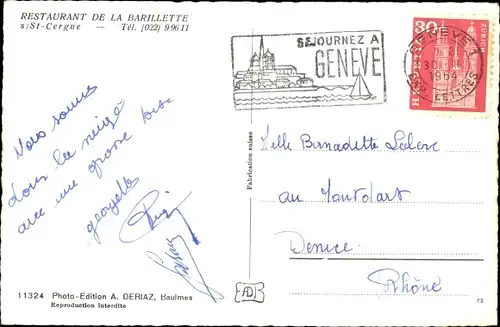 RESTAURANT DE LA BARILLETTE
s/St-Cergue — Tél. (022) 9 96 11
SEJOURNEZ A
GENEVE
GENEVE 1
1964
EXP. LETTRES
HELVETIA
30
ZÜRICH
Nous sommes
dans la neige
avec une grosse bise
georgette
Fabrication suisse
Melle Bernadette Leclerc
au
Denice
Rhône
11324 Photo-Edition A. DERIAZ, Baulmes
Reproduction interdite
AD